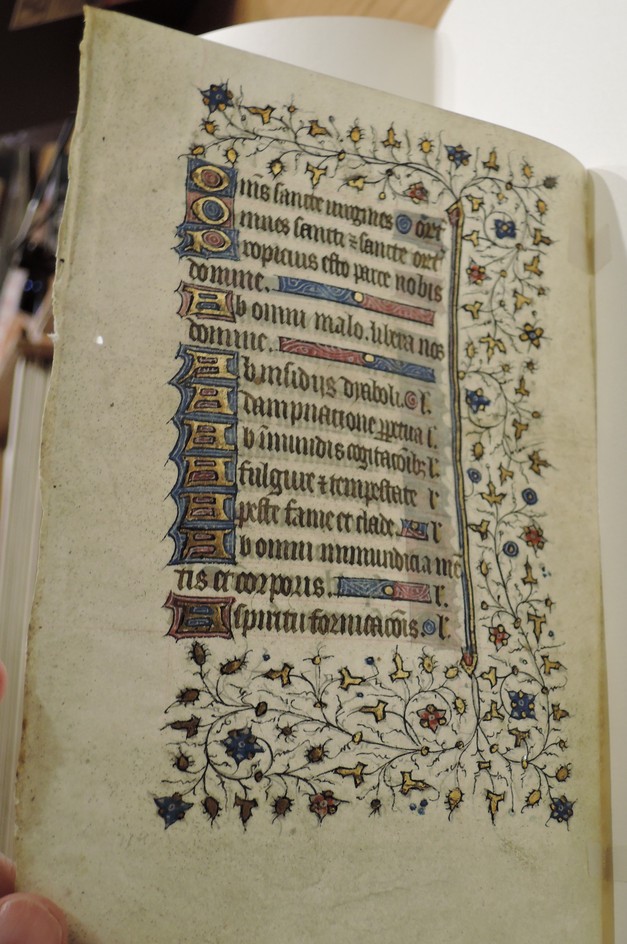 Om̄s sancte virgines ōrt
Omnes sancti ⁊ sancte ort
Propicius esto parce nobis
domine.
Ab omni malo. libera nos
domine.
Ab insidiis dyaboli. l.
A dampnacione ꝑpetua l.
Ab īmundis cogitacōibꝫ l.
A fulgure ⁊ tempestate l
A peste fame et clade. l
Ab omni inmundicia mē
tis et corporis. l.
A spiritu fornicacōis. l.